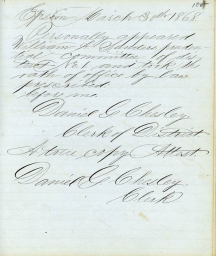 Epsom March 30th 1868
Personally appeared
William S. Sanders pruden-
tial Committee for dis-
trict No 1 and took the
oath of office by law
prescribed
before me
Daniel G Chesley
Clerk of District
A true copy Attest
Daniel G Chesley
Clerk